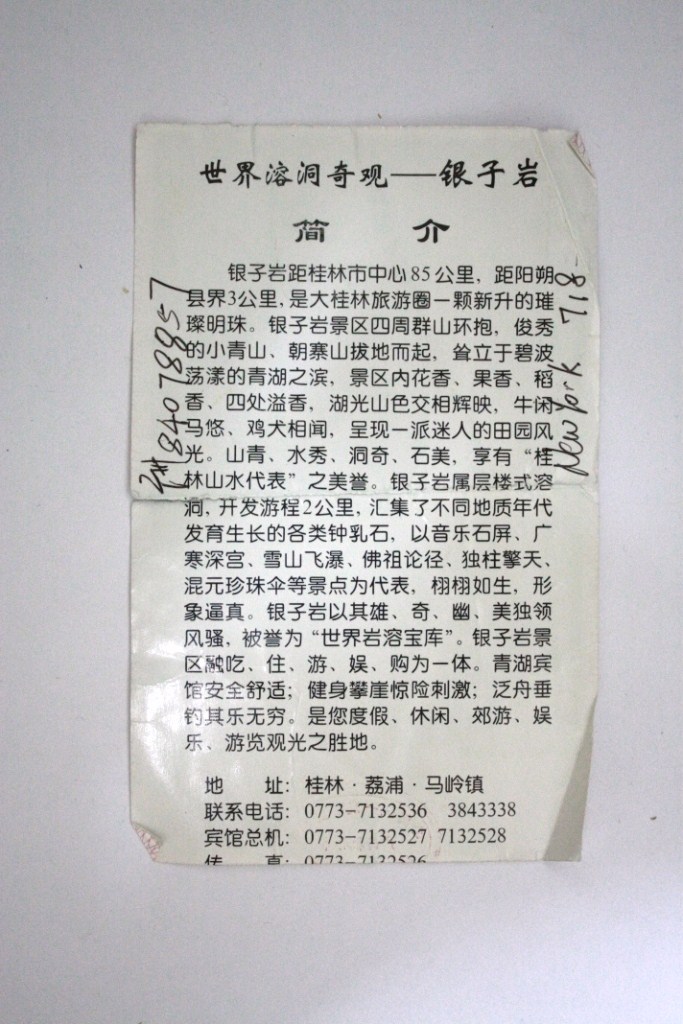 世界溶洞奇观——银子岩
简 介
银子岩距桂林市中心85公里，距阳朔
县界3公里，是大桂林旅游圈一颗新升的璀
璨明珠。银子岩景区四周群山环抱，俊秀
的小青山、朝寨山拔地而起，耸立于碧波
荡漾的青湖之滨，景区内花香、果香、稻
香、四处溢香，湖光山色交相辉映，牛闲
马悠、鸡犬相闻，呈现一派迷人的田园风
光。山青、水秀、洞奇、石美，享有“桂
林山水代表”之美誉。银子岩属层楼式溶
洞，开发游程2公里，汇集了不同地质年代
发育生长的各类钟乳石，以音乐石屏、广
寒深宫、雪山飞瀑、佛祖论径、独柱擎天、
混元珍珠伞等景点为代表，栩栩如生，形
象逼真。银子岩以其雄、奇、幽、美独领
风骚，被誉为“世界岩溶宝库”。银子岩景
区融吃、住、游、娱、购为一体。青湖宾
馆安全舒适；健身攀崖惊险刺激；泛舟垂
钓其乐无穷。是您度假、休闲、郊游、娱
乐、游览观光之胜地。
地 址：桂林·荔浦·马岭镇
联系电话：0773-7132536 3843338
宾馆总机：0773-7132527 7132528
传 真：0773-7132526
84078857
New York 718-